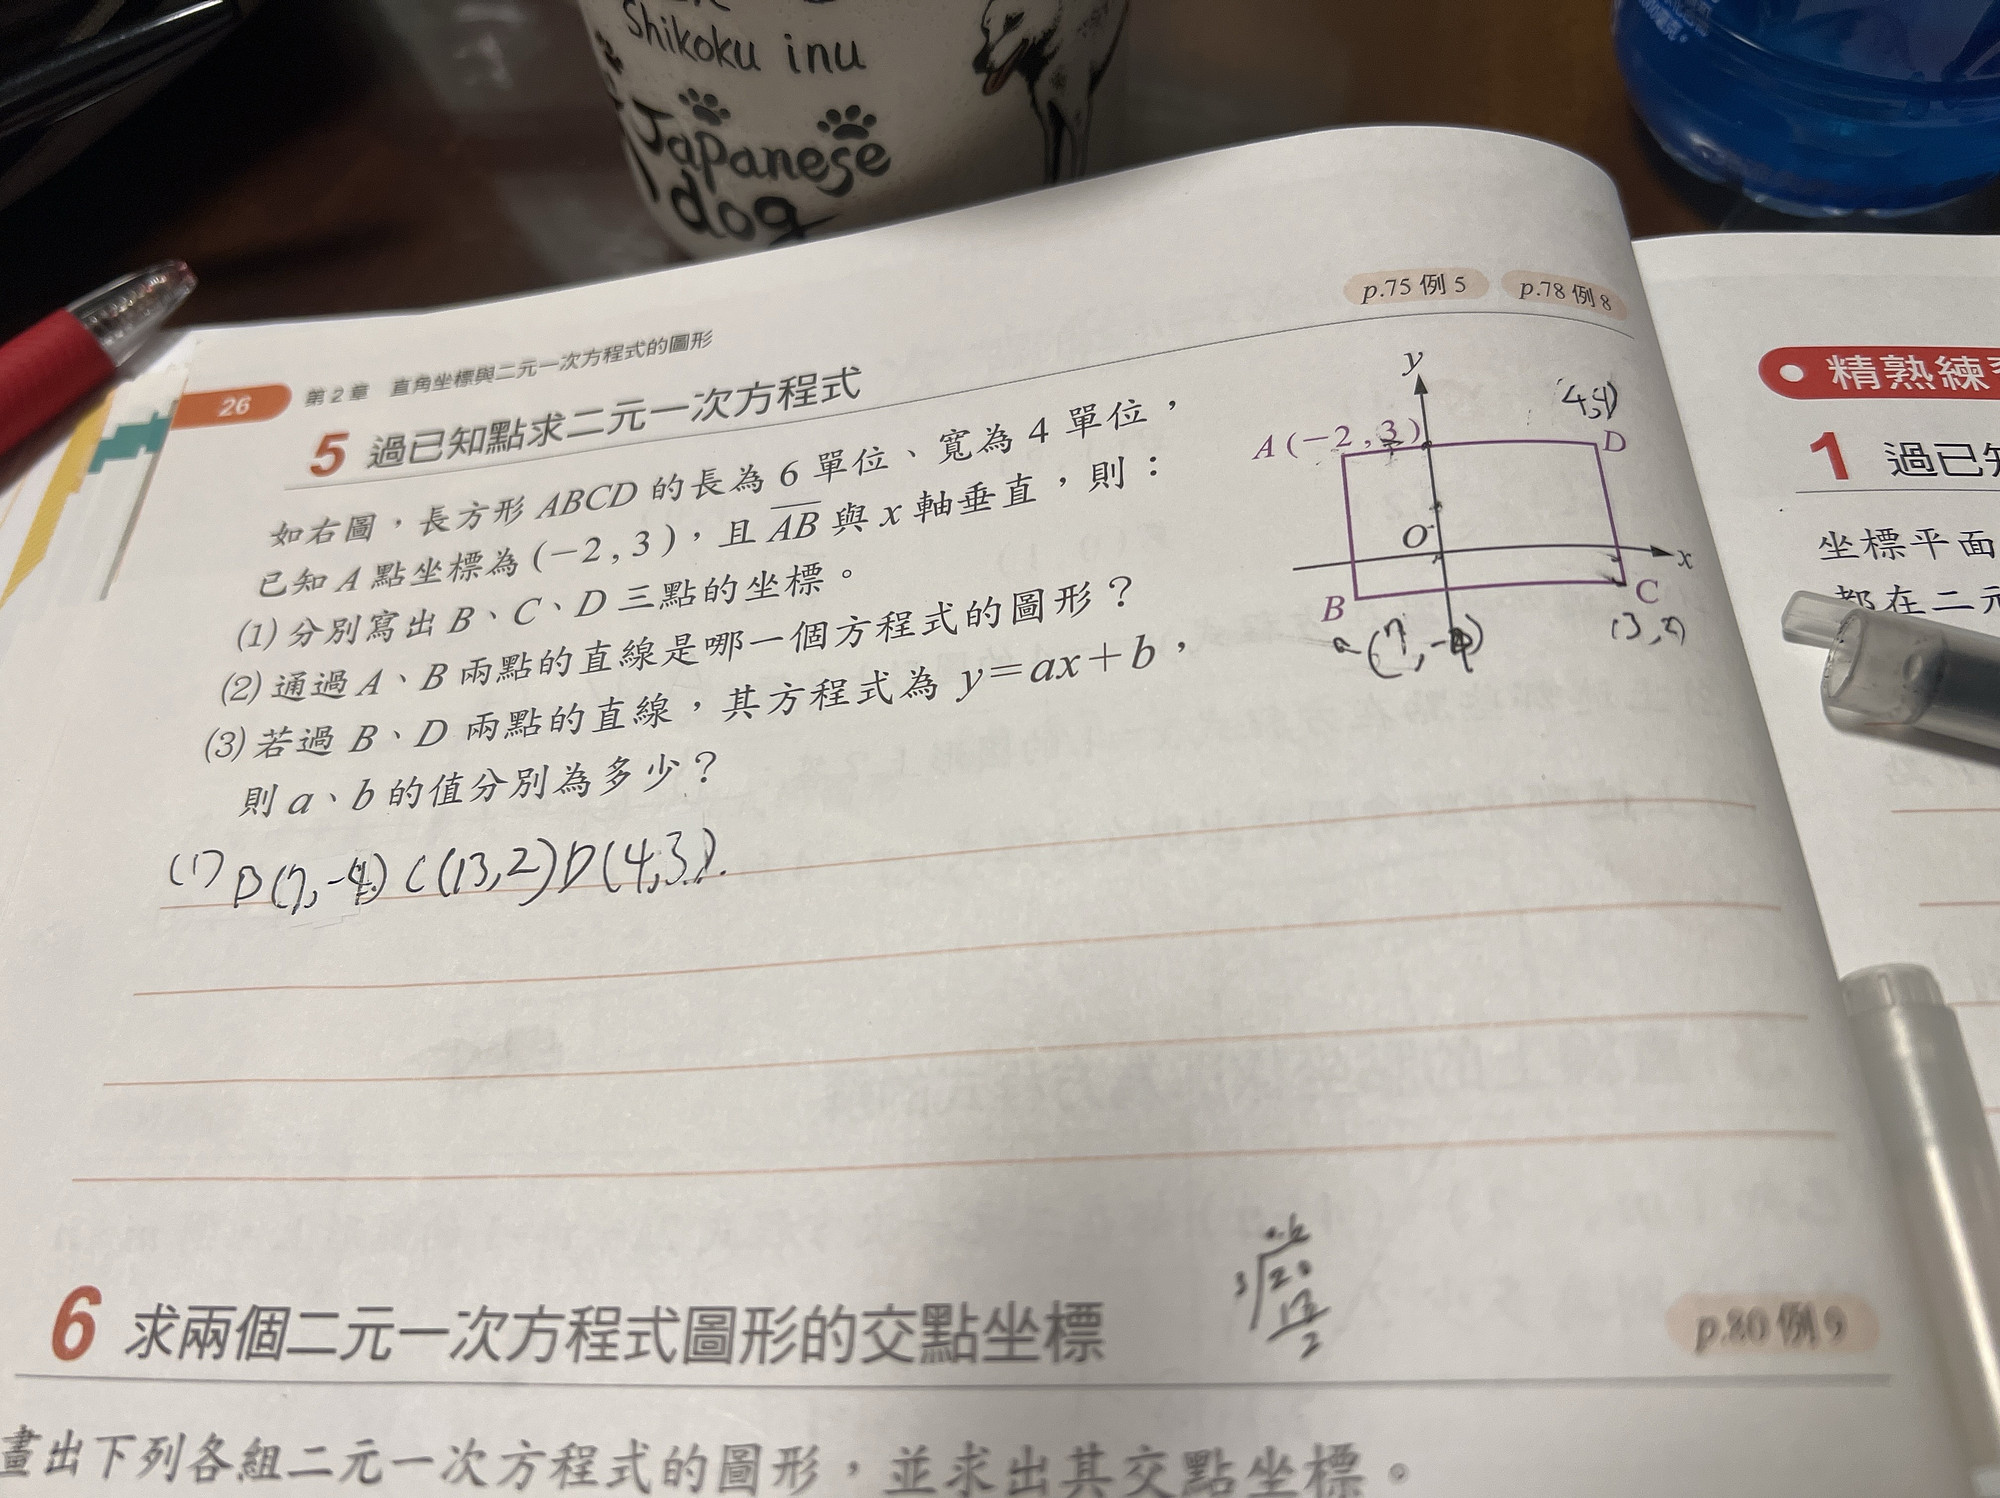 Shikoku inu
Japanese
dog
p.75 例 5
p.78 例 8
26
第 2 章 直角坐標與二元一次方程式的圖形
5 過已知點求二元一次方程式
如右圖，長方形 ABCD 的長為 6 單位、寬為 4 單位，
已知 A 點坐標為 (−2 , 3)，且 AB 與 x 軸垂直，則：
(1) 分別寫出 B、C、D 三點的坐標。
(2) 通過 A、B 兩點的直線是哪一個方程式的圖形？
(3) 若過 B、D 兩點的直線，其方程式為 y＝ax＋b，
則 a、b 的值分別為多少？
y
A (−2 , 3)
D
O
x
B
C
(1) B(7,-4) C(13,2) D(4,3).
6 求兩個二元一次方程式圖形的交點坐標
p.80 例 9
畫出下列各組二元一次方程式的圖形，並求出其交點坐標。
精熟練
1 過已
坐標平面
都在二元